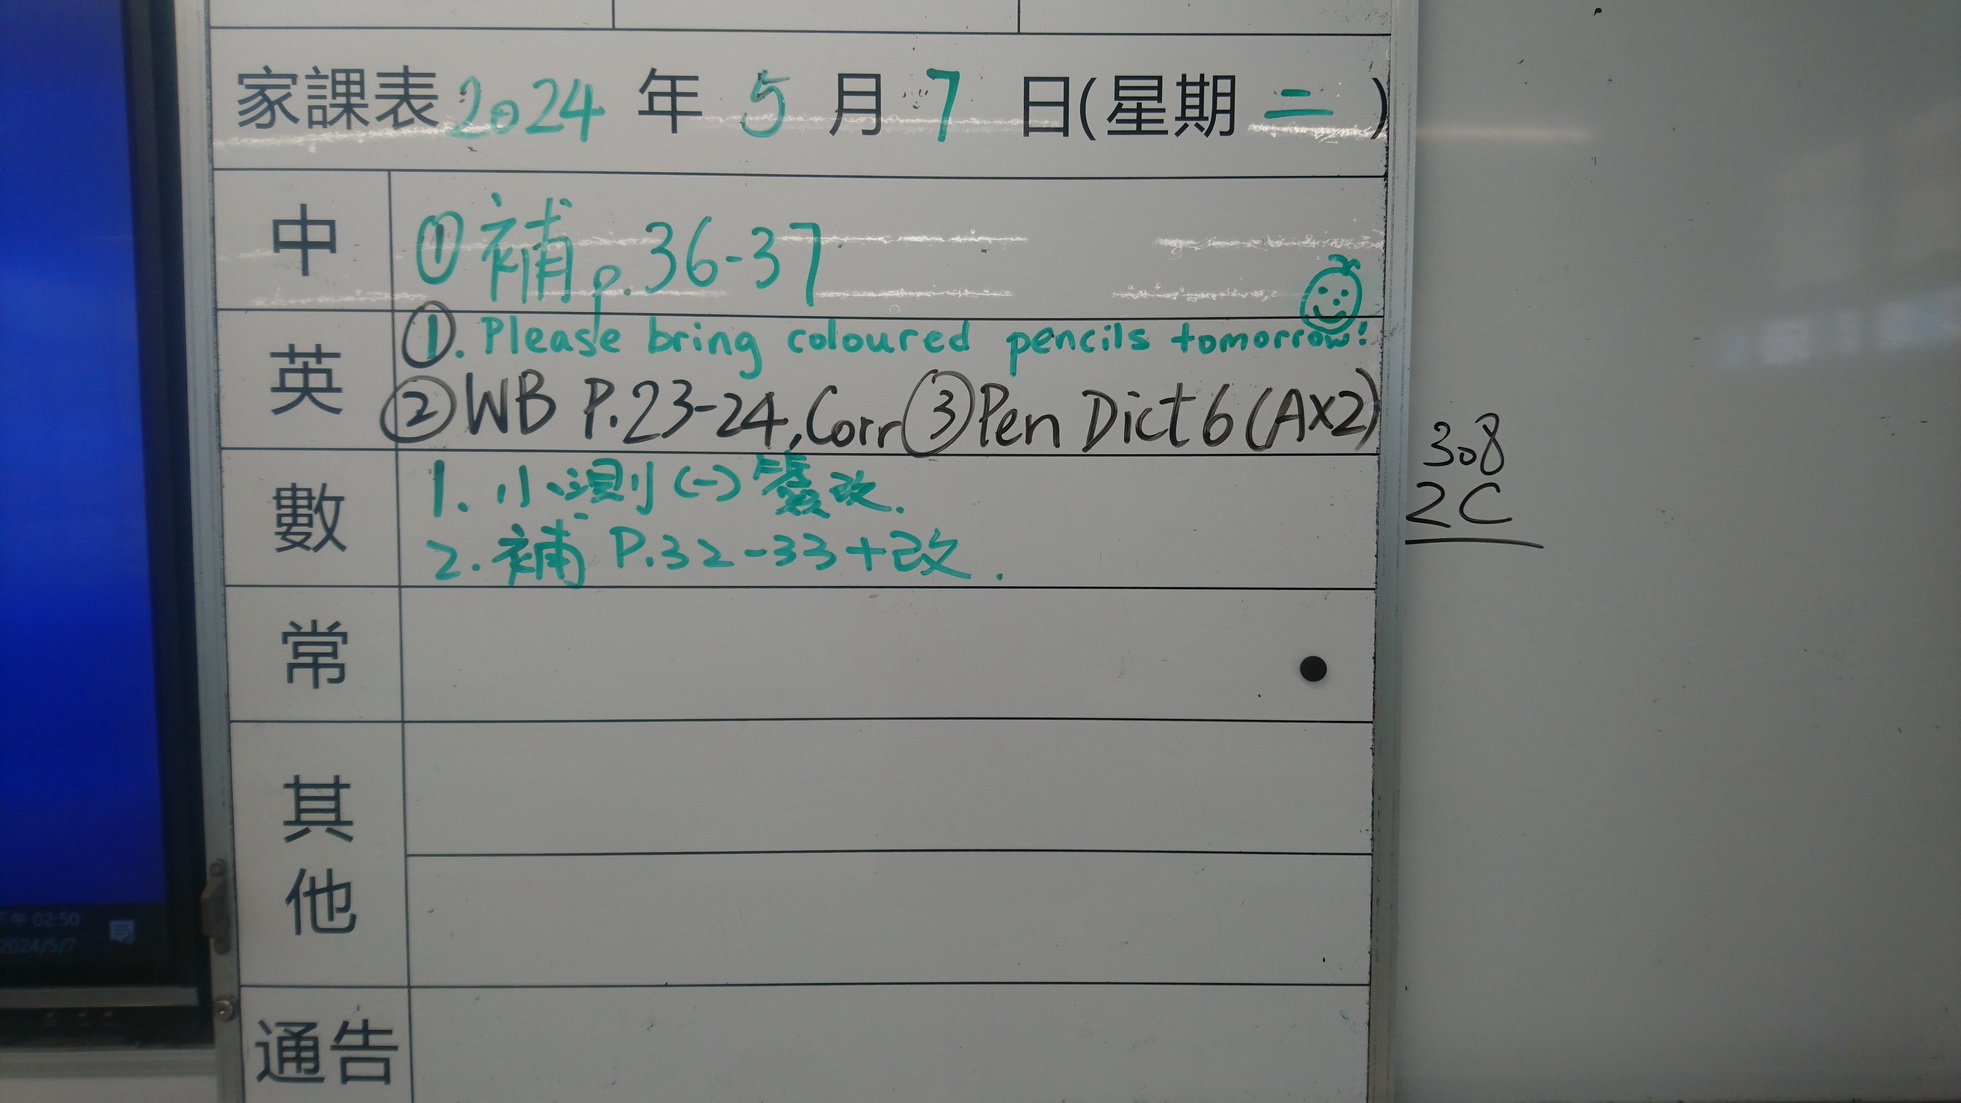 家課表 2024 年 5 月 7 日(星期 二 )
中
① 補 p.36-37
英
①. Please bring coloured pencils tomorrow!
② WB P.23-24, Corr ③ Pen Dict 6 (A×2)
數
1. 小測(一) 改.
2. 補 P.32-33+改.
常
其他
通告
308
2C
午 02:50
2024/5/7